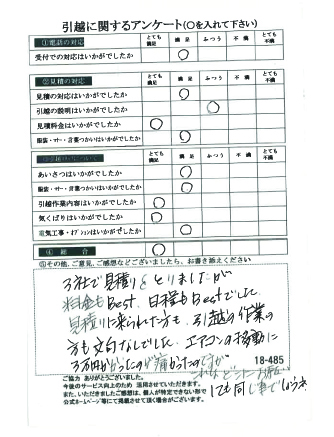 引越に関するアンケート(○を入れて下さい)
①電話の対応 とても満足 満足 ふつう 不満 とても不満
受付での対応はいかがでしたか ○
②見積の対応 とても満足 満足 ふつう 不満 とても不満
見積の対応はいかがでしたか ○
引越の説明はいかがでしたか ○
見積料金はいかがでしたか ○
服装・マナー・言葉づかいはいかがでしたか ○
とても満足 満足 ふつう 不満 とても不満
あいさつはいかがでしたか ○
服装・マナー・言葉づかいはいかがでしたか ○
引越作業内容はいかがでしたか ○
気くばりはいかがでしたか ○
電気工事・オプションはいかがでしたか ○
④総合 ○
⑤その他、ご意見、ご感想などございましたら、お書き添えください
3社で見積りをとりましたが
料金もBest、日程もBestでした。
見積りに来られた方も、引越の作業の
方も文句なしでした。エアコンの移動に
3万円かかったのが痛かったのですが
18-485
これはどこにお願い
しても同じ事でしょうネ
ご協力 ありがとうございました。
今後のサービス向上のため 活用させていただきます。
またいただきましたご感想は、個人が特定できない形で
公式ホームページ等にて掲載させて頂く場合がございます。